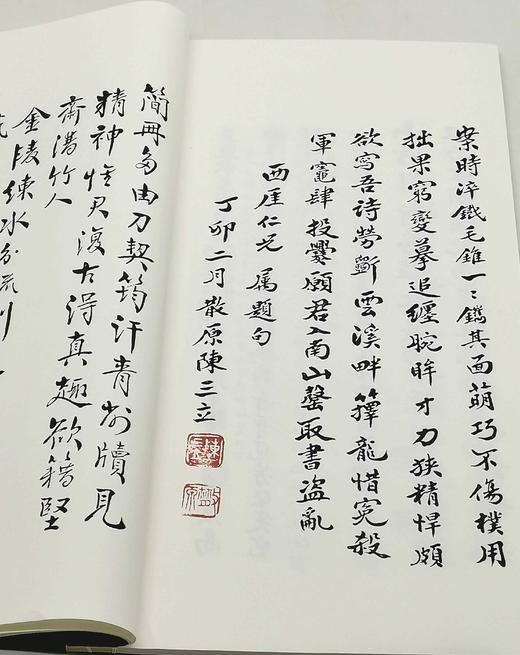 案時淬鐵毛錐一一鐫其面萌巧不傷樸用
拙果窮變摹追纏腕眸才力挾精悍頗
欲寫吾詩勞斷雲溪畔籜龍惜冤殺
軍竈肆投爨願君入南山罄取書盜亂
西厓仁兄屬題句
丁卯二月散原陳三立
簡冊多由刀契筠汗青削牘見
精神怪君復古得真趣欲籍堅
齋潛竹人
金陵練水分流